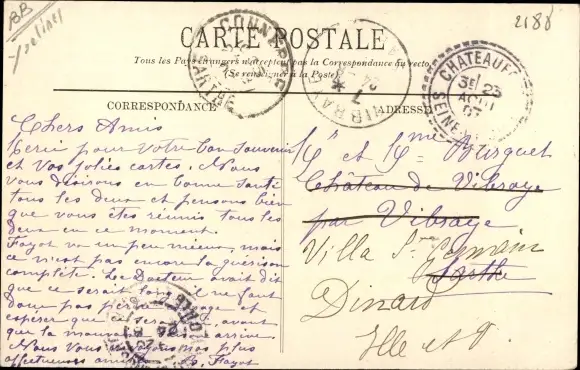 BB
2188
CARTE POSTALE
Tous les Pays étrangers n'acceptent pas la Correspondance au recto
(Se renseigner à la Poste)
CONNERRÉ
SARTHE
VIBRAYE
7
24
CHATEAUF
3E 23
AOUT
07
SEINE
CORRESPONDANCE
ADRESSE
Chers Amis
Merci pour votre bon souvenir
et vos jolies cartes. Nous
vous désirons en bonne santé
tous les deux et pensons bien
que vous êtes réunis tous les
deux en ce moment.
Fayot va un peu mieux, mais
ce n'est pas encore la guérison
complète. Le Docteur avait dit
que ce serait long, il ne faut
donc pas
espérer que avant
que la mauvaise arrive.
Nous vous nos plus
affectueuses amitiés Fayot
Mr et Mme Bourguet
Château de Vibraye
par Vibraye
Sarthe
Villa St Germain
Dinard
Ille et V.